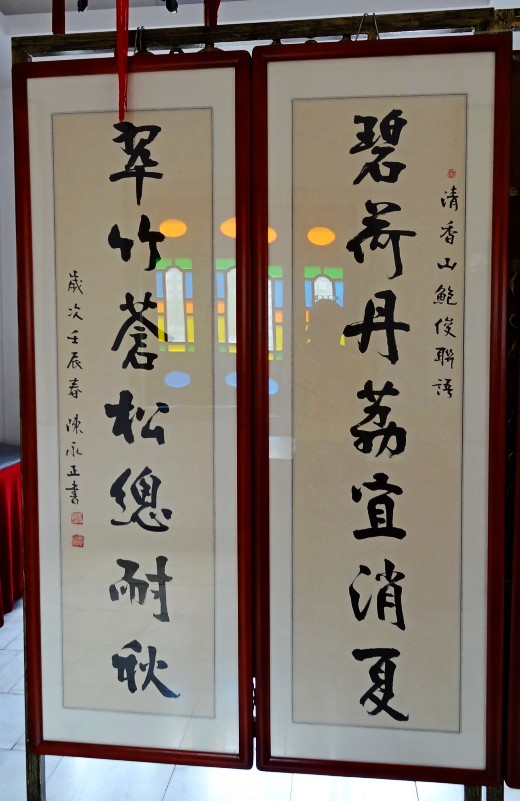 碧荷丹荔宜消夏
清香山鮑俊聯語
翠竹蒼松總耐秋
歲次壬辰春陳永正書